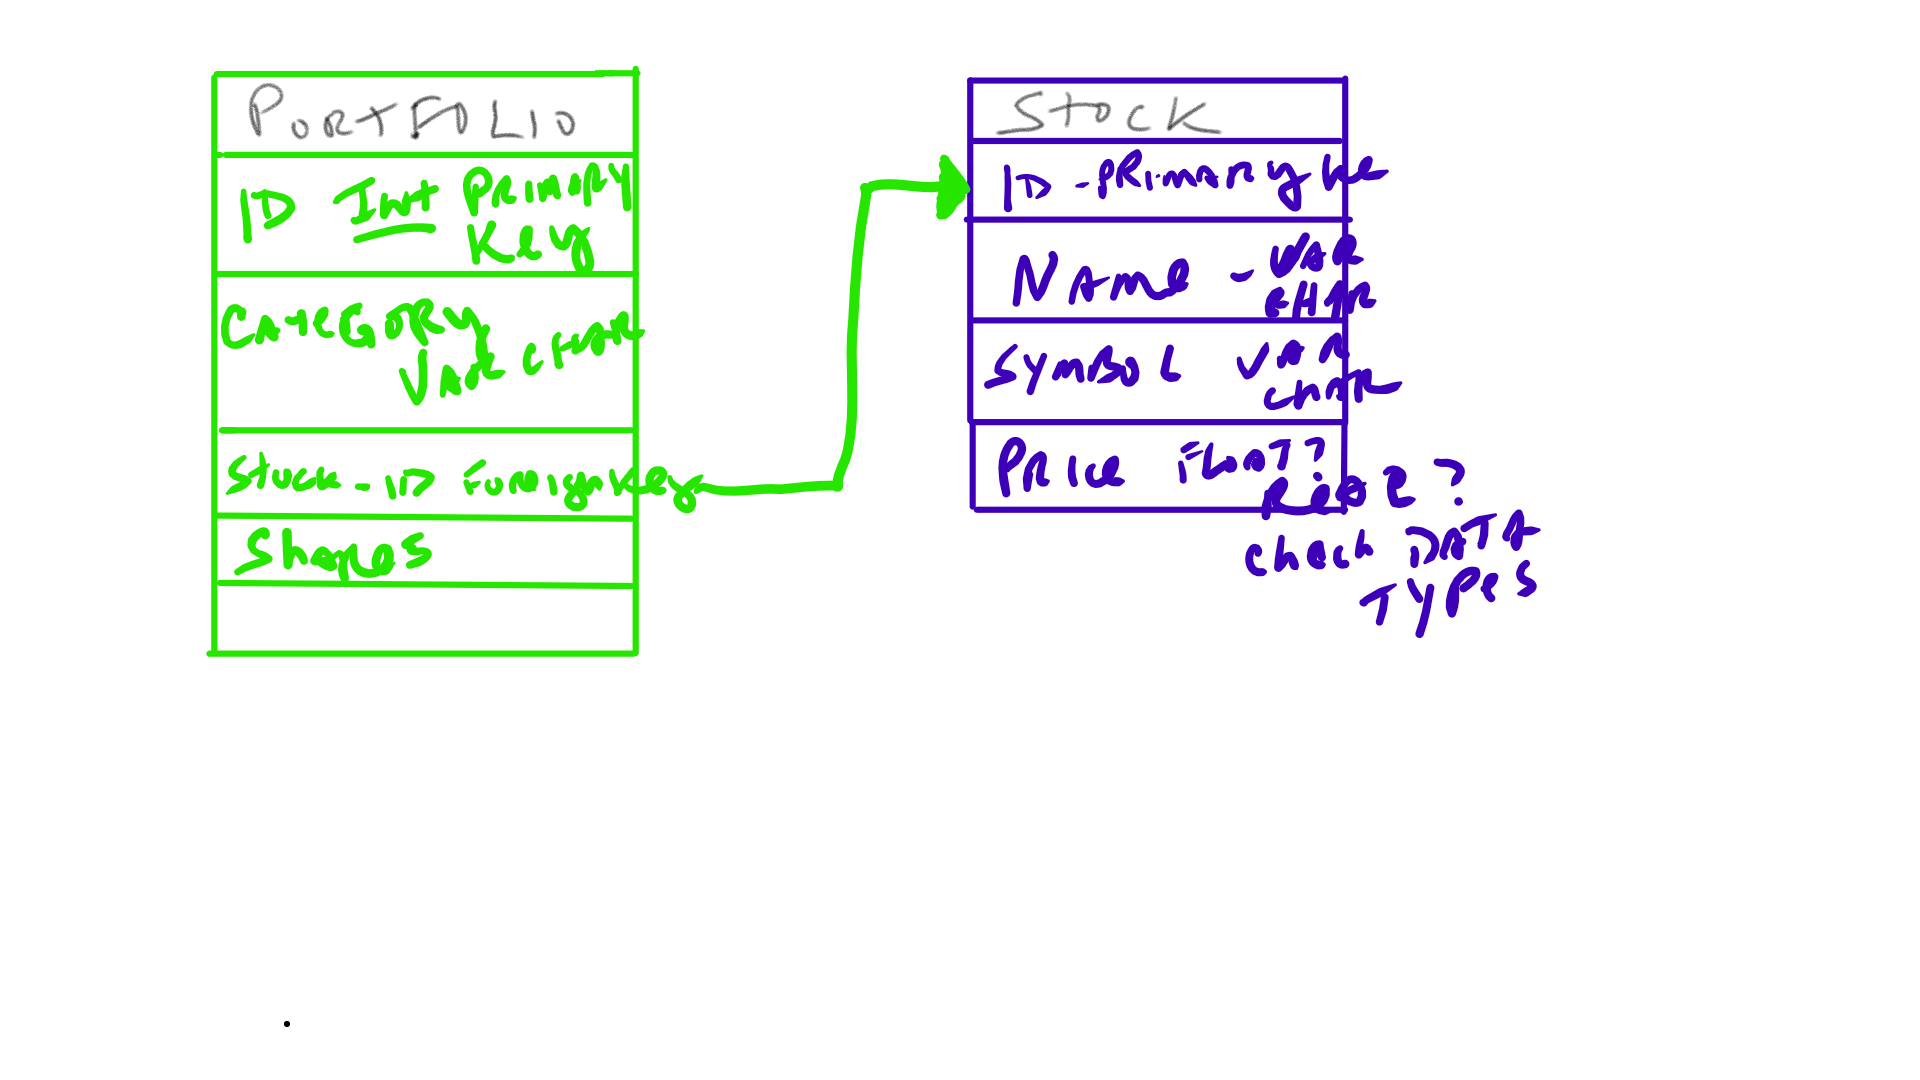 PORTFOLIO
ID Int PRIMARY
Key
CATEGORY
VARCHAR
Stock - ID Foreign Key
Shares
STOCK
ID - PRIMARY Ke
NAME - VAR
CHAR
SYMBOL VAR
CHAR
PRICE FLOAT?
REAL?
Check DATA
TYPES